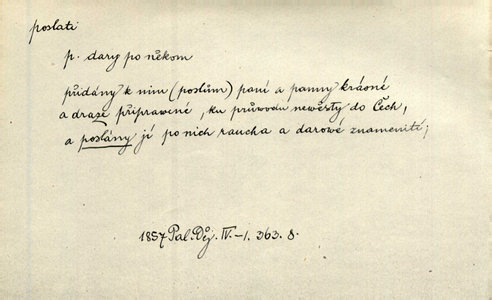 poslati
p. dary po někom
přidány k nim (poslům) paní a panny krásné
a draze připravené, ku průvodu newěsty do Čech,
a poslány jí po nich raucha a darowé znamenití;
1857 Pal. Děj. IV.-1. 363. 8.